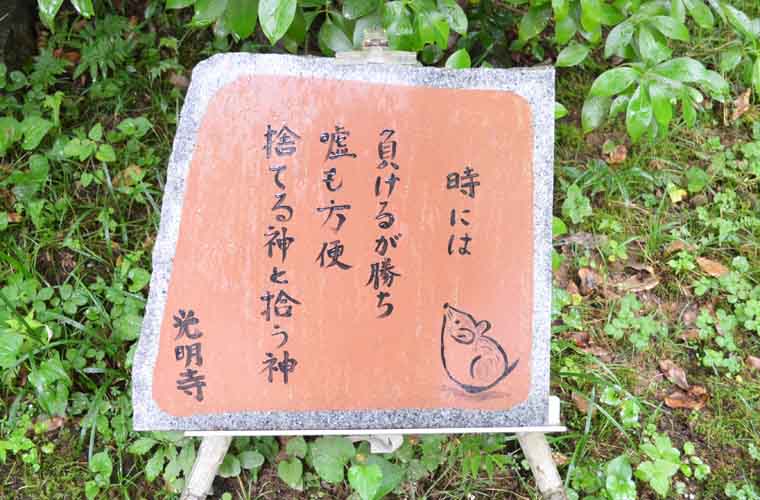 時には
負けるが勝ち
嘘も方便
捨てる神と拾う神
光明寺